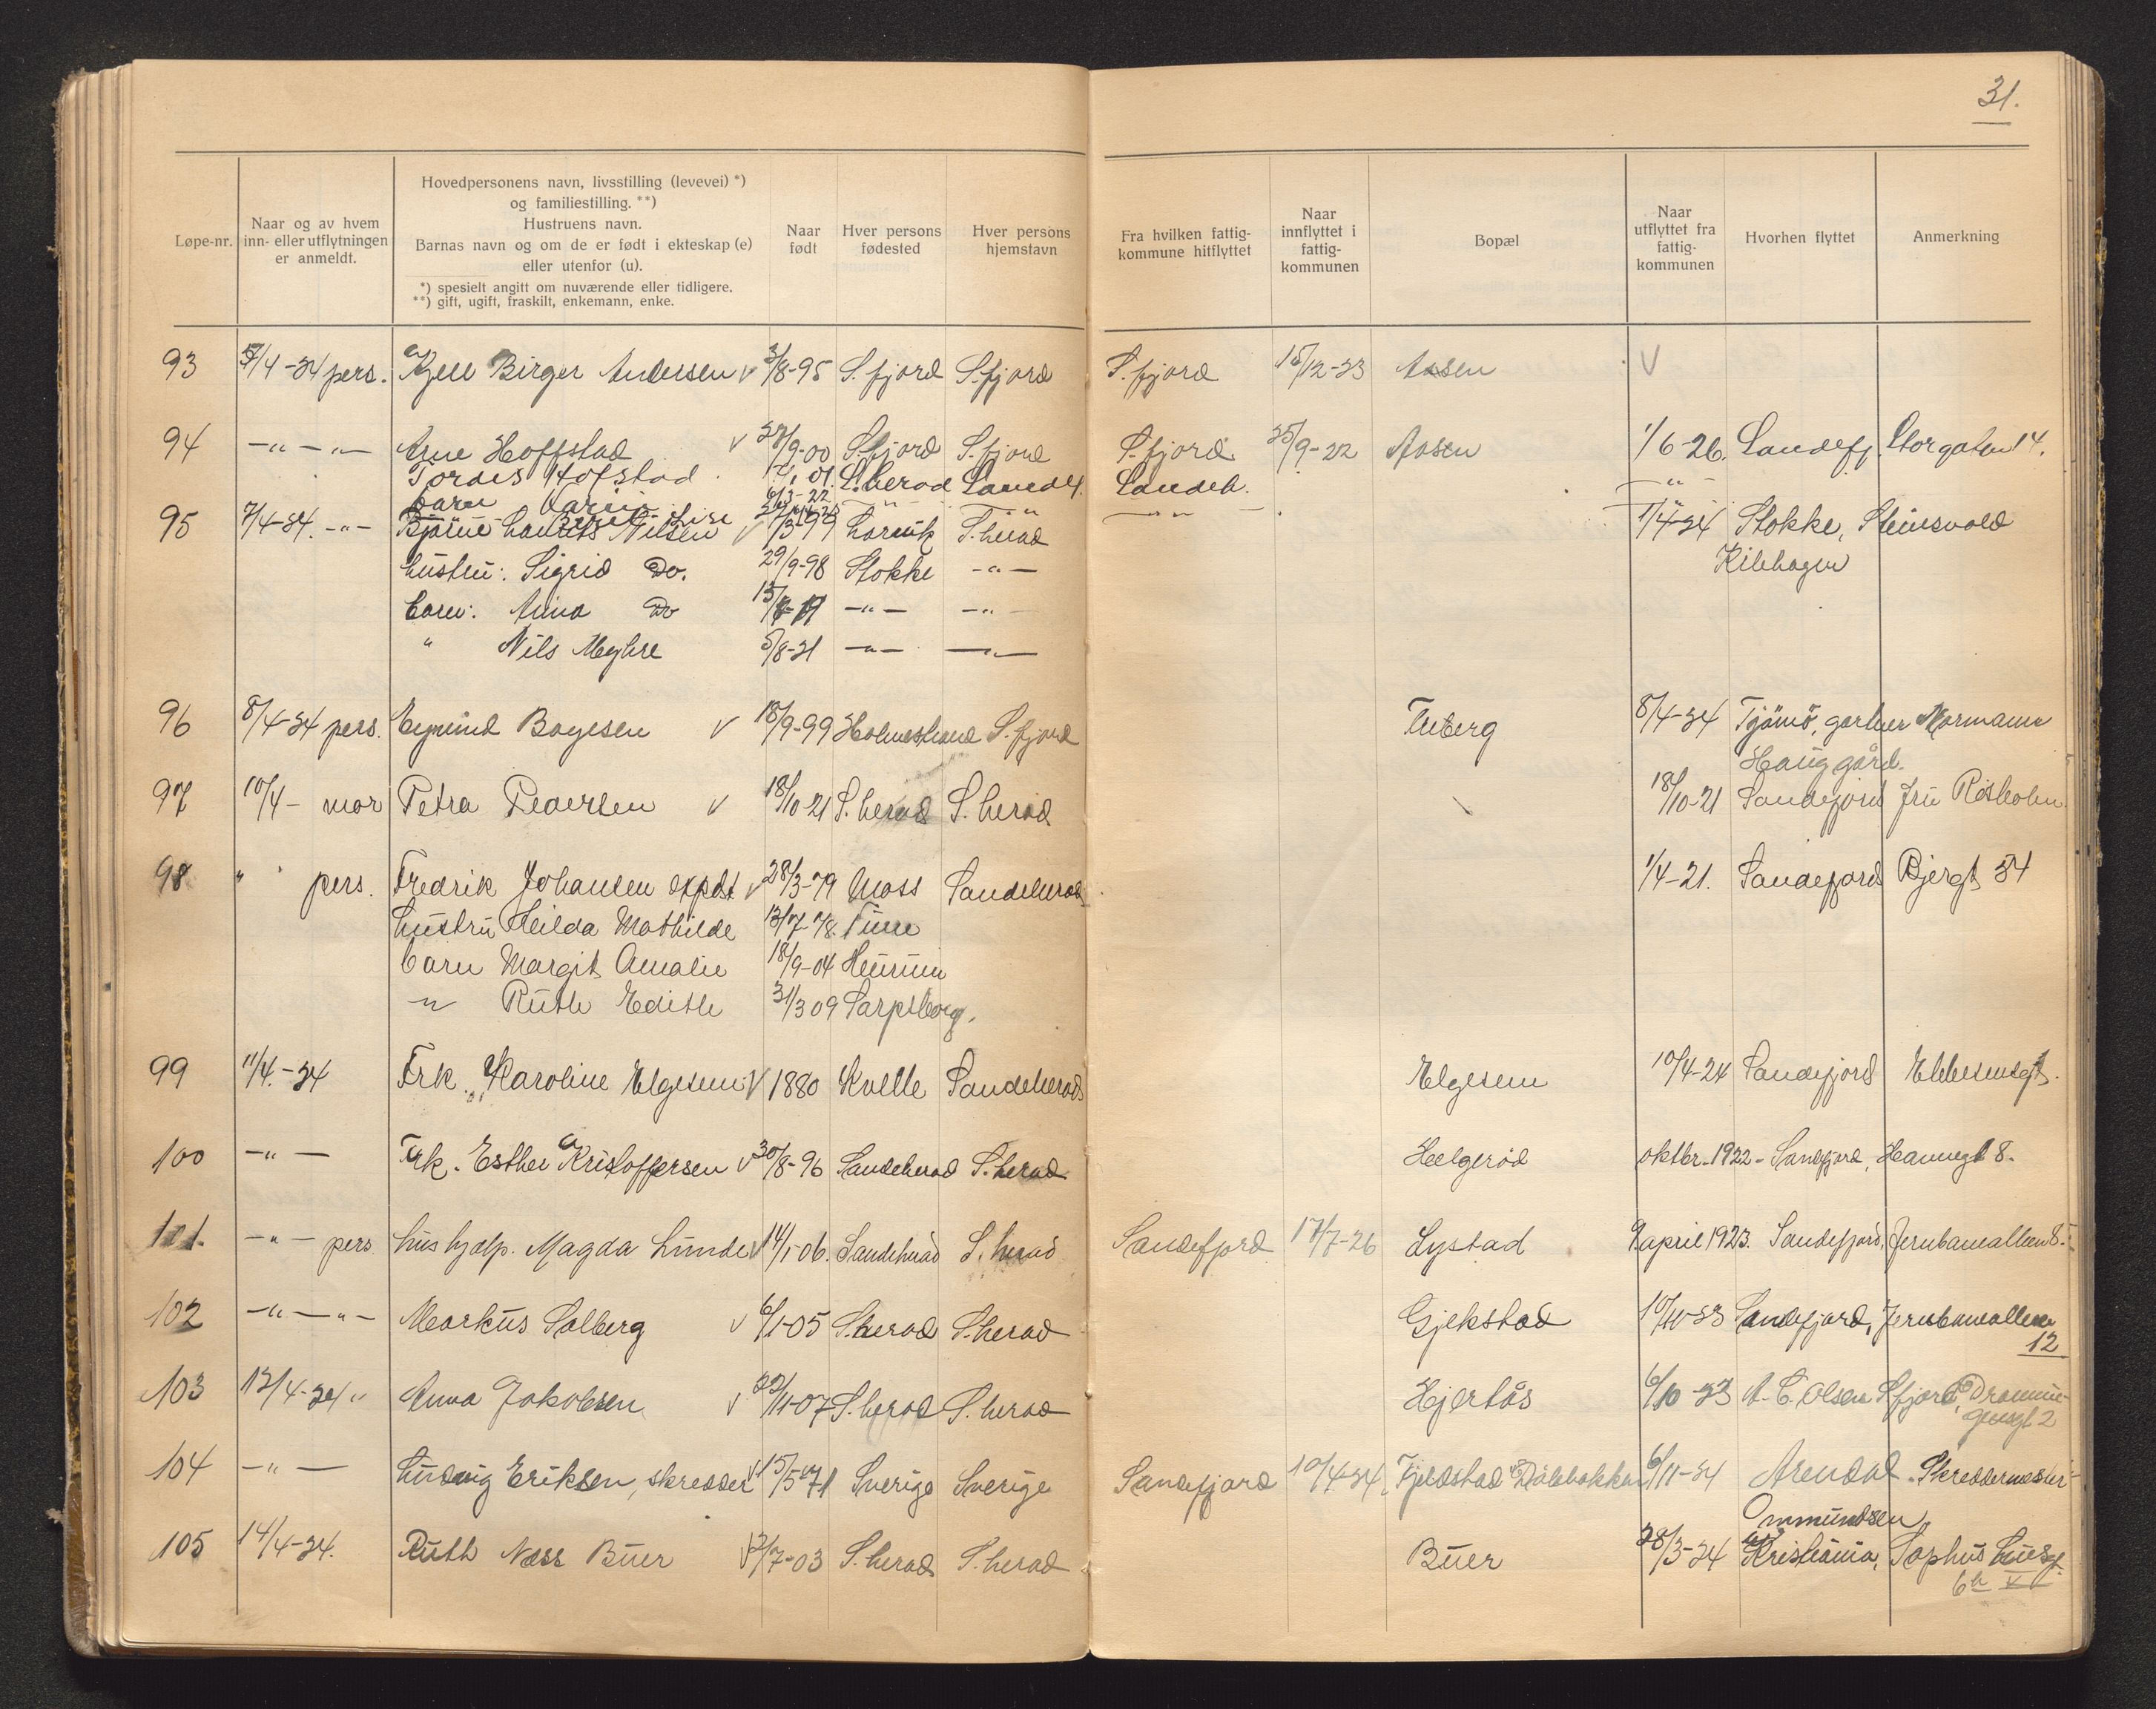 31.
Løpe-nr.
Naar og av hvem
inn- eller utflytningen
er anmeldt.
Hovedpersonens navn, livsstilling (levevei) *)
og familiestilling. **)
Hustruens navn.
Barnas navn og om de er født i ekteskap (e)
eller utenfor (u).
*) spesielt angitt om nuværende eller tidligere.
**) gift, ugift, fraskilt, enkemann, enke.
Naar
født
Hver persons
fødested
Hver persons
hjemstavn
Fra hvilken fattig-
kommune hitflyttet
Naar
innflyttet i
fattig-
kommunen
Bopæl
Naar
utflyttet fra
fattig-
kommunen
Hvorhen flyttet
Anmerkning
93 /4-24 pers. Birger Andersen v 3/8-95 S.fjord S.fjord S.fjord 15/12-23 Aasen V
94 -"-"- Arne Hoffstad v 28/9-00 S.fjord S.fjord S.fjord 25/9-22 Aasen 1/6-26. Sandefj. Storgaten 14.
Tordis Hofstad S.herad Sandeh. Sandeh. -"-
barn 6/3-22 -"-
95 7/4-24. -"- Bjarne Laurits Nilsen v /3-99 Larvik S.herad 1/4-24 Stokke,
hustru: Sigrid Do. 29/9-98 Stokke -"-
barn: Anna Do 15/ -"- -"-
" Nils 5/8-21 -"- -"-
96 8/4-24 pers. Eymind Boyesen v 18/9-99 Holmestrand S.fjord 8/4-24 Tjømø, gartner Normann
Hauggård.
97 10/4- mor Petra Pedersen v 18/10-21 S.herad S.herad 18/10-21 Sandefjord Fru
98 " pers. Fredrik Johansen expdt v 28/3-79 Moss Sandeherad 1/4-21. Sandefjord Bjergt 54
hustru Hilda Mathilde 13/7-78.
barn Margit Amalie 18/9-04
-"- Ruth Edith 31/3 09 Sarpsborg.
99 11/4.-24 Frk. Karoline Elgesem V 1880 Kvelle Sandeherad Elgesem 10/4-24 Sandefjord
100 -"- Frk. Esther Kristoffersen v 30/8-96 Sandeherad S.herad Helgerød oktbr. 1922 - Sandefjord, Havnegt 8.
101. -"- pers. hushjælp. Magda Lunde v 14/1-06. Sandeherad S.herad Sandefjord 17/7-26 Lystad 9 april 1923. Sandefjord, Jernbanealleen 8.
102 -"-"- Markus Solberg v 6/1-05 S.herad S.herad Gjekstad 10/10-23 Sandefjord, Jernbancalleen
12
103 12/4-24 " Anna Jakobsen v 22/11-07 S.herad S.herad Hjertås 6/10-23 A. C. Olsen S.fjord, Dramme-
gensgt. 2
104 -"- Ludvig Eriksen, skredder v 15/5-71 Sverige Sverige Sandefjord 10/4-24 Fjeldstad 6/11-24 Arendal. Skreddermester
Ommundsen
105 14/4-24. Ruth Næss Buer V 2/7-03 S.herad S.herad Buer 28/3-24 Kristiania, Sophus Liesgt.
6 V